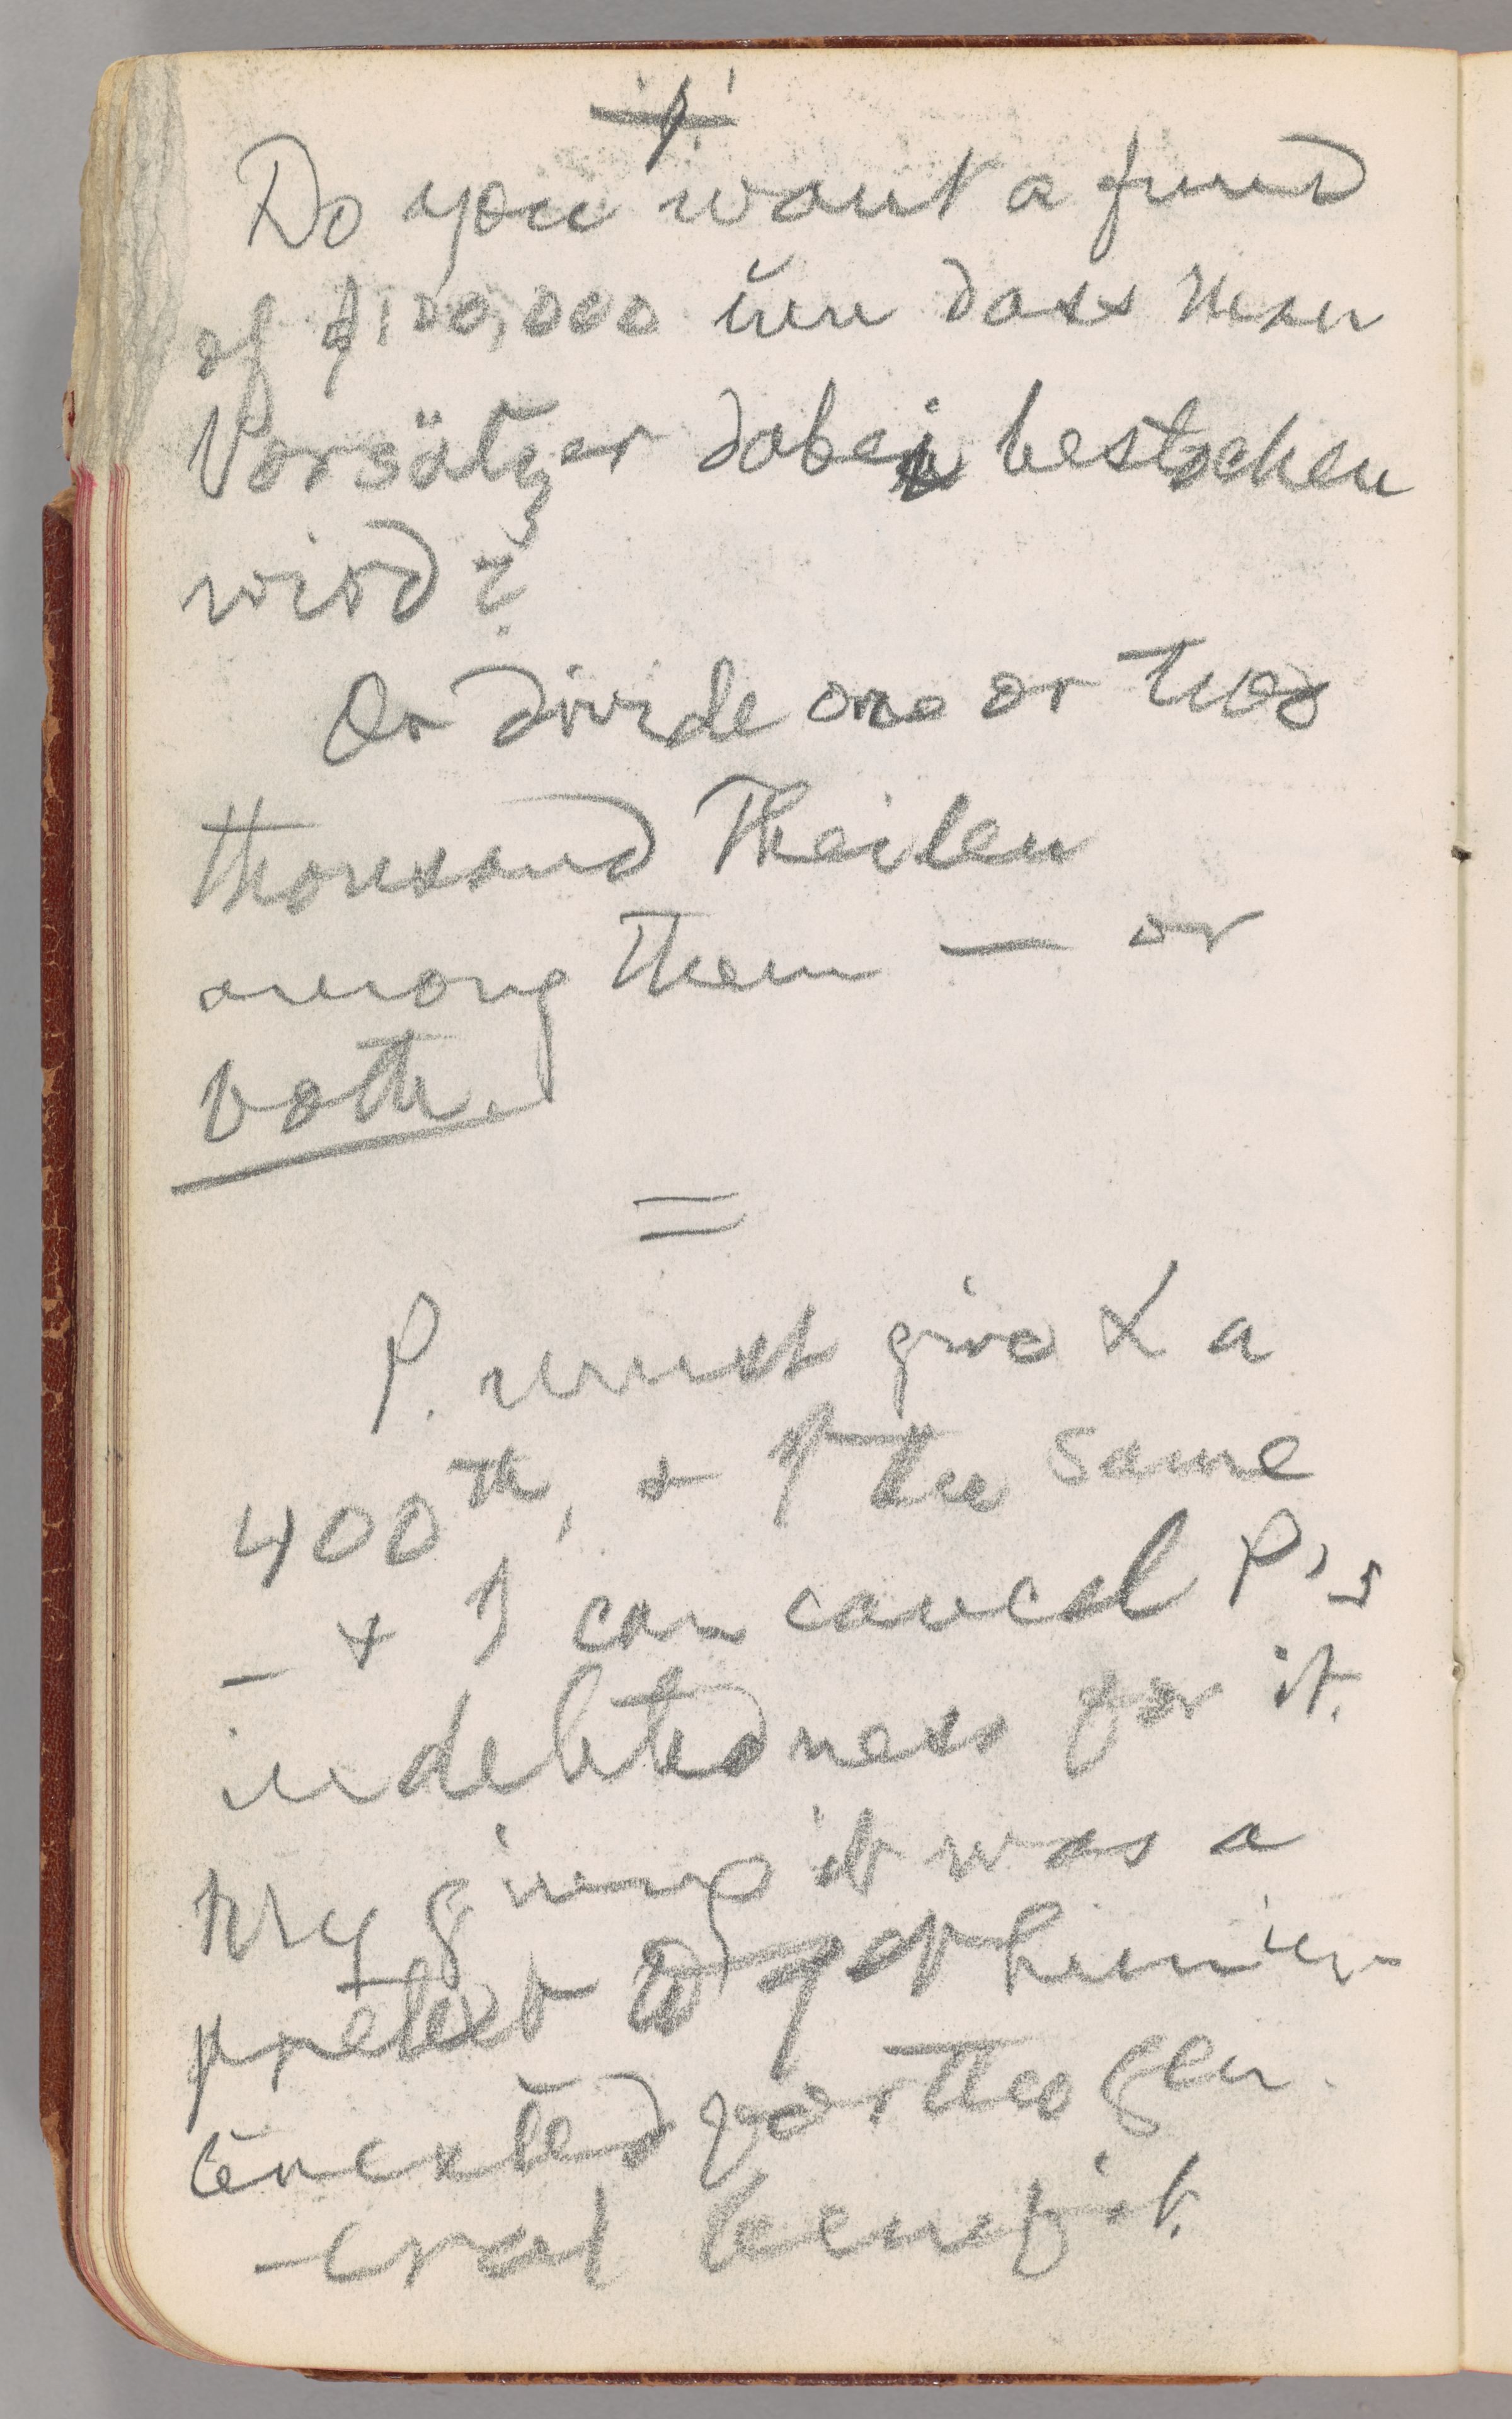 Do you want a fund
of $100,000 um dass man
Vorsätzer dabei bestochen
wird?
Or divide one or two
thousand Theilen
among them — or
both.
=
P. must give X a
400th, & I the same
— & I can cancel P's
indebtedness for it.
My giving it was a
pretext to get him in-
terested for the gen-
eral benefit.